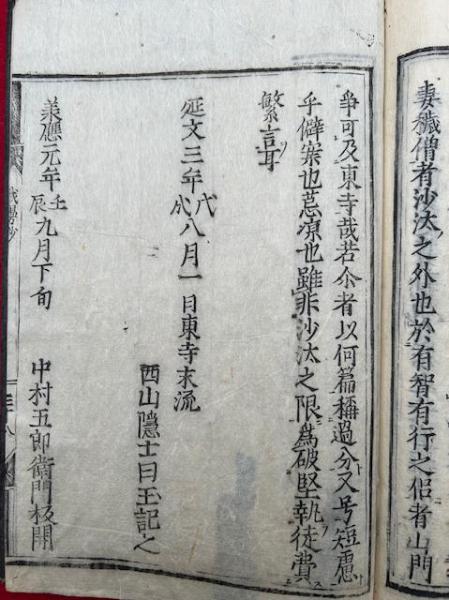 妻穢僧者沙汰之外也於有智有行之侶者山門
爭可及東寺哉若尒者以何篇稱過分又号短慮
乎僻案也荒凉也雖非沙汰之限為破堅執徒費
繁言耳
延文三年戊戌八月一日東寺末流
西山隱士曰玉記之
承應元年壬辰九月下旬 中村五郎衞門板開